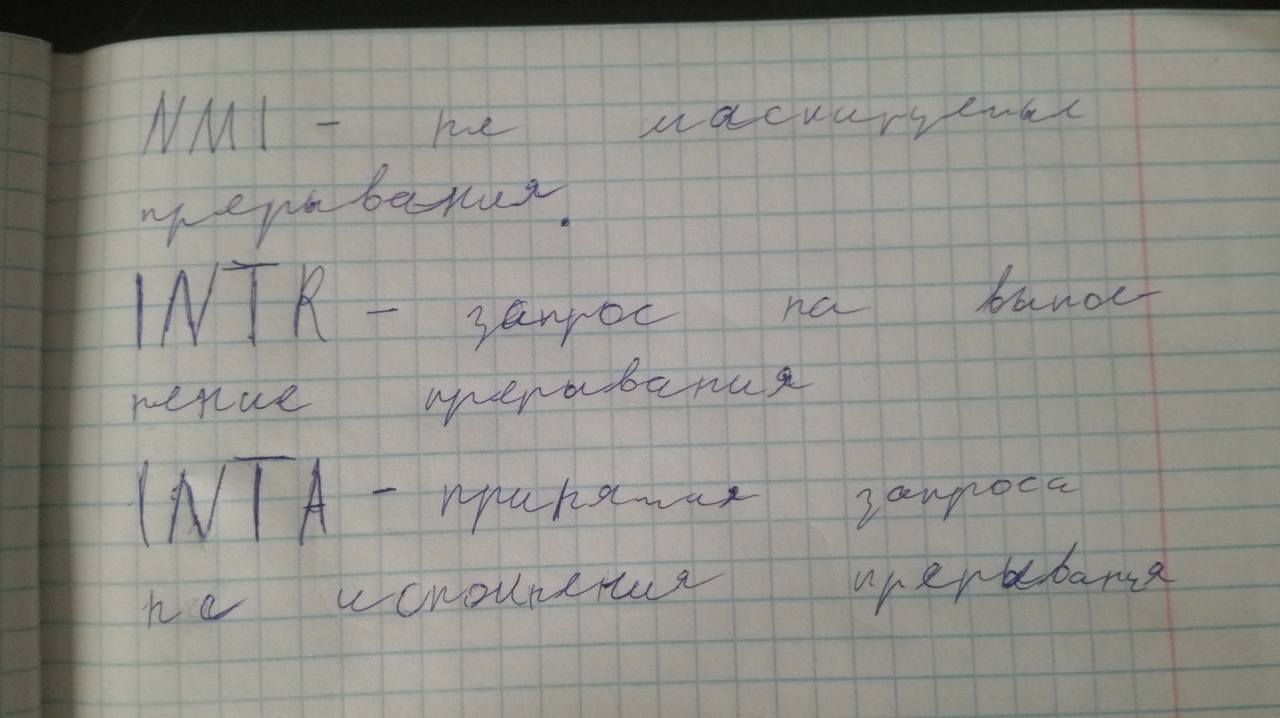 NMI - не маскируемые
прерывания.
INTR - запрос на выпол
нение прерывания
INTA - принятия запроса
на исполнения прерывания